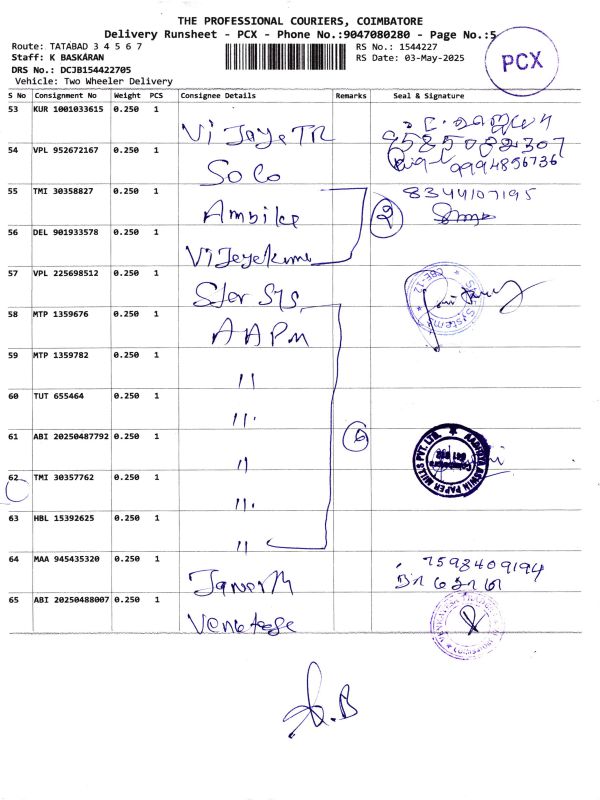 THE PROFESSIONAL COURIERS, COIMBATORE
Delivery Runsheet - PCX - Phone No.:9047080280 - Page No.:5
Route: TATABAD 3 4 5 6 7
RS No.: 1544227
Staff: K BASKARAN
RS Date: 03-May-2025
PCX
DRS No.: DCJB154422705
Vehicle: Two Wheeler Delivery
S No Consignment No Weight PCS Consignee Details Remarks Seal & Signature
53 KUR 1001033615 0.250 1
Vijaye TR
54 VPL 952672167 0.250 1
9994856736
SoCo
55 TMI 30358827 0.250 1
8344107195
Ambike
56 DEL 901933578 0.250 1
Vijeyekume
57 VPL 225698512 0.250 1
Ster Sys
58 MTP 1359676 0.250 1
AAPM
59 MTP 1359782 0.250 1
"
60 TUT 655464 0.250 1
"
61 ABI 20250487792 0.250 1
6
"
62 TMI 30357762 0.250 1
"
63 HBL 15392625 0.250 1
"
64 MAA 945435320 0.250 1
7598409194
65 ABI 20250488007 0.250 1